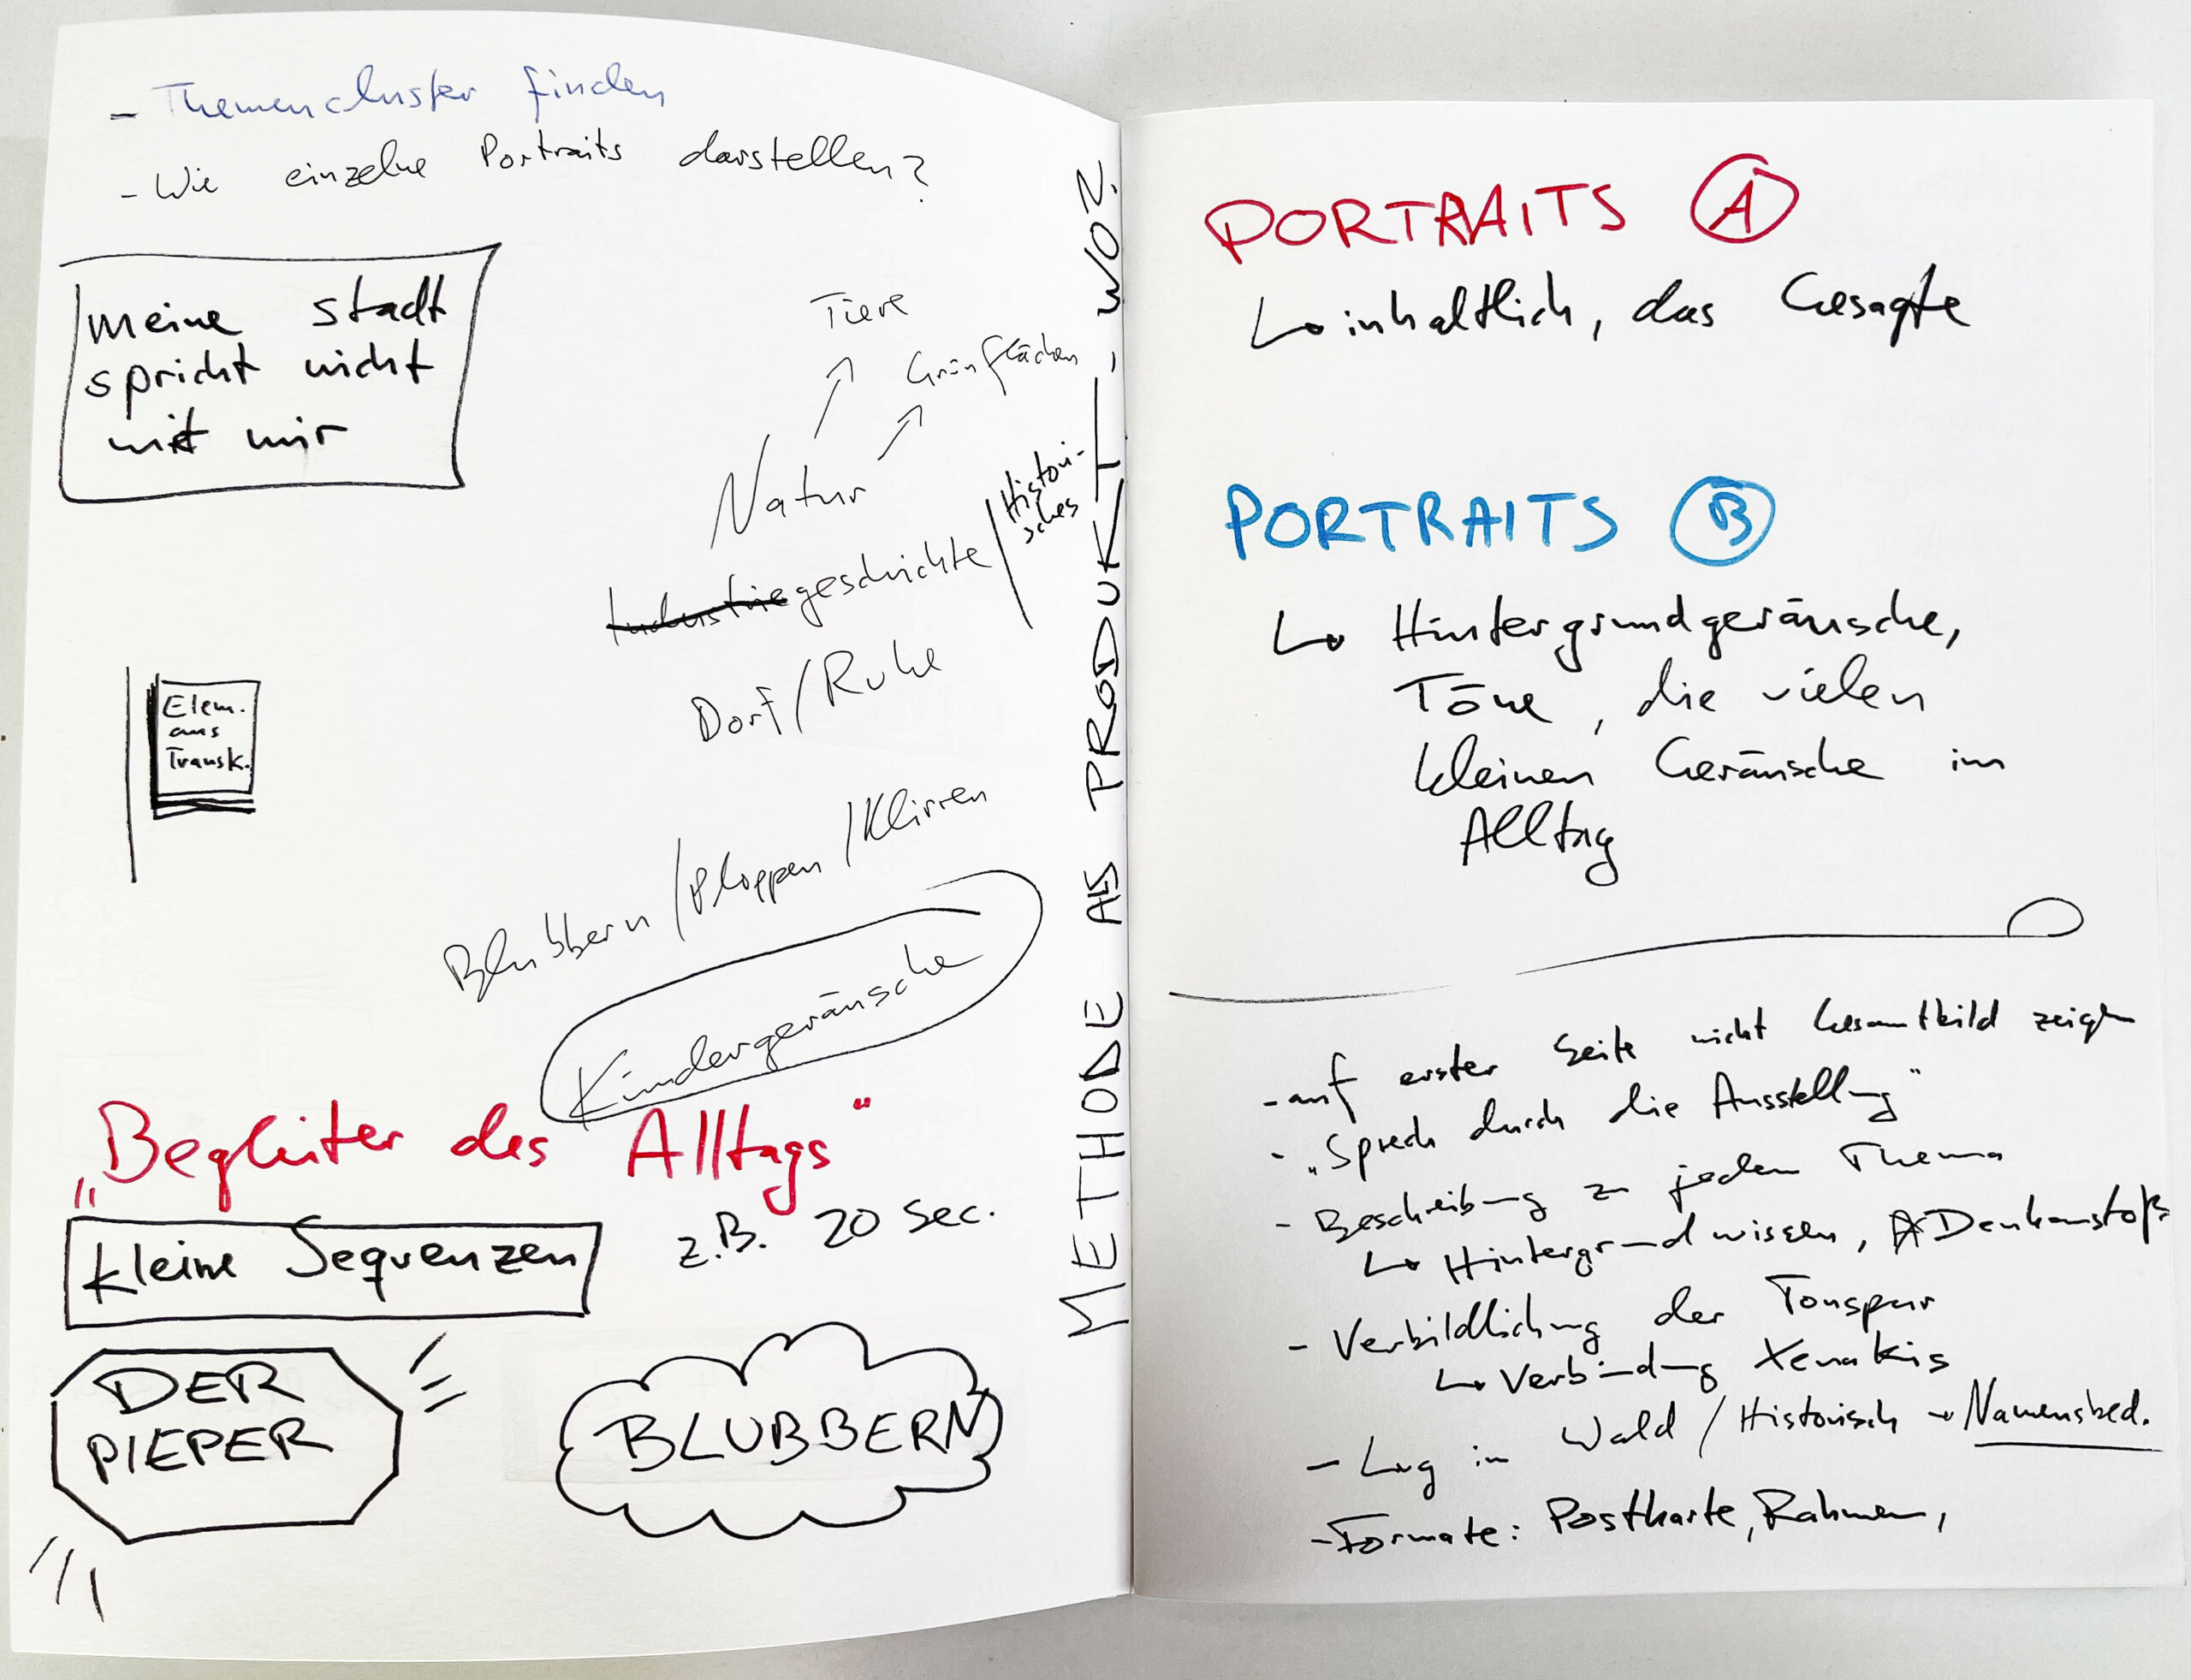 - Themencluster finden
- Wie einzelne Portraits darstellen?
meine stadt
spricht nicht
mit mir
Tiere
Grünflächen
Natur
Industriegeschichte / Histori-
sches
Dorf / Ruhe
Elem.
aus
Transk.
Blubbern / Ploppen / Klirren
Kindergeräusche
„Begleiter des Alltags"
kleine Sequenzen
z.B. 20 Sec.
DER
PIEPER
BLUBBERN
METHODE ALS PRODUKT, WO?
PORTRAITS A
↳ inhaltlich, das Gesagte
PORTRAITS B
↳ Hintergrundgeräusche,
Töne, die vielen
kleinen Geräusche im
Alltag
- auf erster Seite nicht Gesamtbild zeigen
- „Sprech durch die Ausstellung"
- Beschreibung zu jedem Thema
↳ Hintergrundwissen, Denkanstoß
- Verbildlichung der Tonspur
↳ Verbindung Xenakis
- Lug in Wald / Historisch → Namensbed.
- Formate: Postkarte, Rahmen,